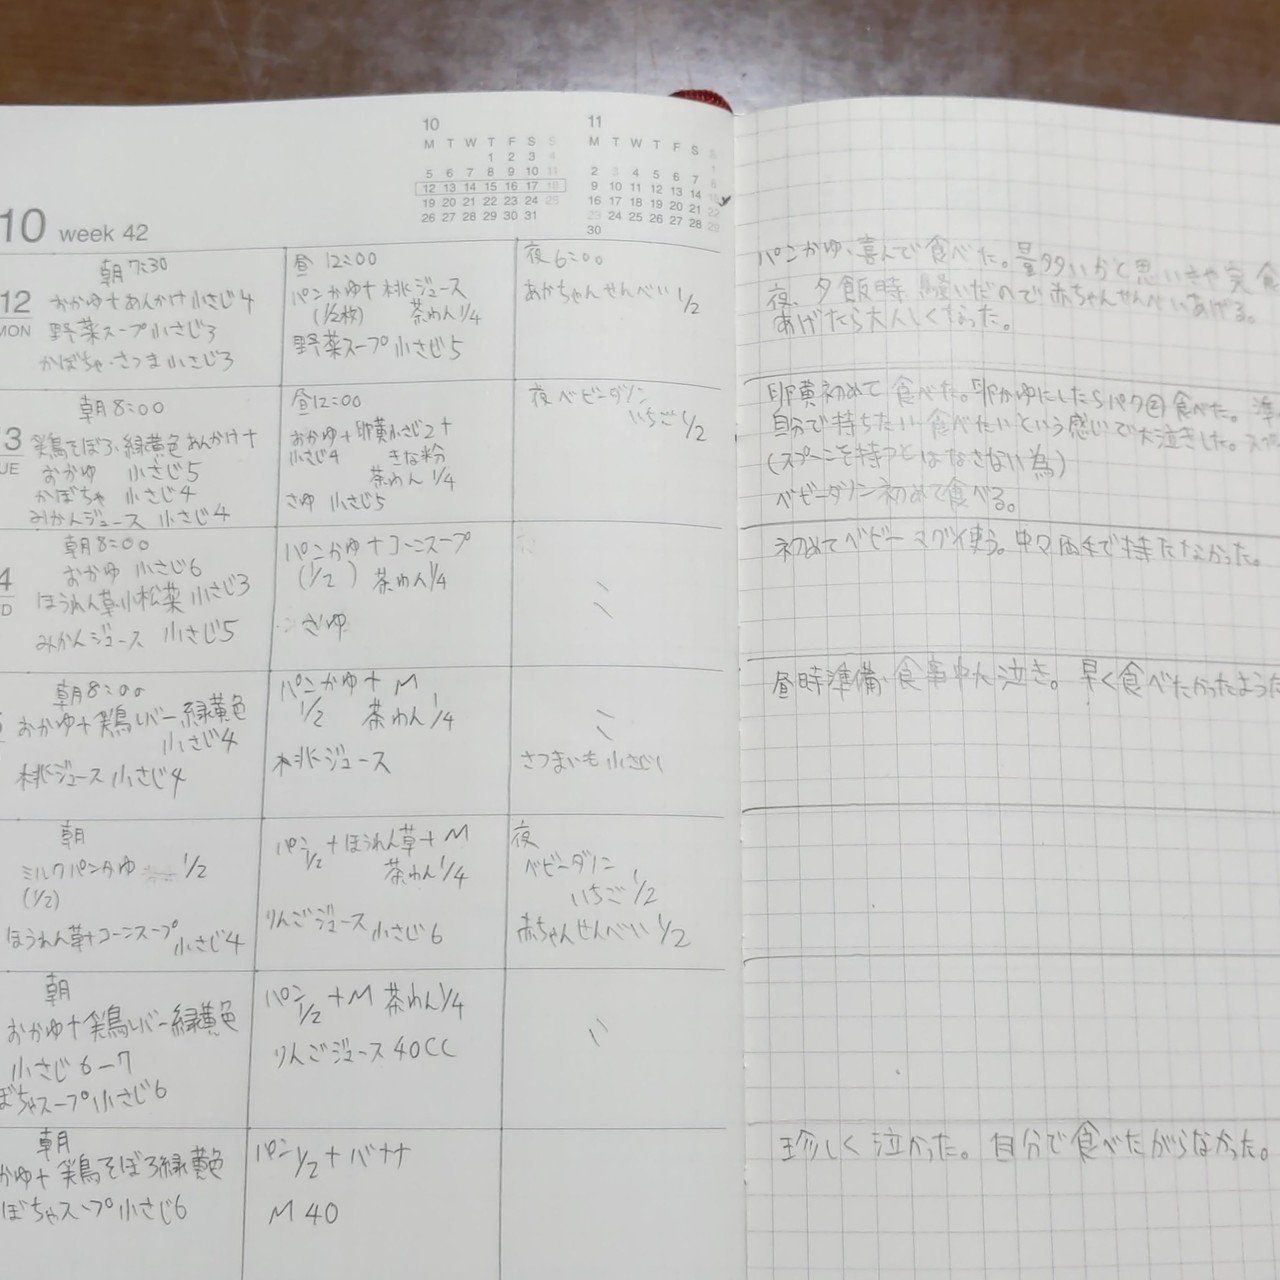 10
M T W T F S S
1 2 3 4
5 6 7 8 9 10 11
12 13 14 15 16 17 18
19 20 21 22 23 24 25
26 27 28 29 30 31
11
M T W T F S S
1
2 3 4 5 6 7 8
9 10 11 12 13 14
16 17 18 19 20 21 22
23 24 25 26 27 28 29
30
10 week 42
12
MON
朝 7:30
おかゆ+あんかけ 小さじ4
野菜スープ 小さじ3
かぼちゃ・さつま 小さじ3
昼 12:00
パンかゆ+桃ジュース
(1/2枚) 茶わん1/4
野菜スープ 小さじ5
夜 6:00
あかちゃんせんべい 1/2
パンかゆ、喜んで食べた。量多いかと思いきや完食
夜、夕飯時騒いだので赤ちゃんせんべいあげる。
あげたら大人しくなった。
3
UE
朝 8:00
鶏そぼろ・緑黄色あんかけ+
おかゆ 小さじ5
かぼちゃ 小さじ4
みかんジュース 小さじ4
昼12:00
おかゆ+卵黄小さじ2+
小さじ4 きな粉
茶わん 1/4
さゆ 小さじ5
夜 ベビーダノン
いちご 1/2
卵黄初めて食べた。卵かゆにしたらパク②食べた。
自分で持ちたい食べたいという感じで大泣きした。
(スプーンを持つとはなさない為)
ベビーダノン初めて食べる。
4
D
朝8:00
おかゆ 小さじ6
ほうれん草・小松菜 小さじ3
みかんジュース 小さじ5
パンかゆ+コーンスープ
(1/2) 茶わん1/4
さゆ
初めてベビーマグ使う。中々両手で持たなかった。
朝8:00
おかゆ+鶏レバー緑黄色
小さじ4
桃ジュース 小さじ4
パンかゆ+M
1/2 茶わん1/4
桃ジュース
さつまいも 小さじ1
昼時準備・食事中大泣き。早く食べたかったようだ
朝
ミルクパンかゆ 1/2
(1/2)
ほうれん草+コーンスープ
小さじ4
パン+ほうれん草+M
1/2 茶わん1/4
りんごジュース 小さじ6
夜
ベビーダノン
いちご 1/2
赤ちゃんせんべい 1/2
朝
おかゆ+鶏レバー緑黄色
小さじ6-7
ぼちゃスープ 小さじ6
パン1/2+M 茶わん1/4
りんごジュース 40CC
朝
かゆ+鶏そぼろ緑黄色
ぼちゃスープ 小さじ6
パン1/2+バナナ
M 40
珍しく泣かった。自分で食べたがらなかった。